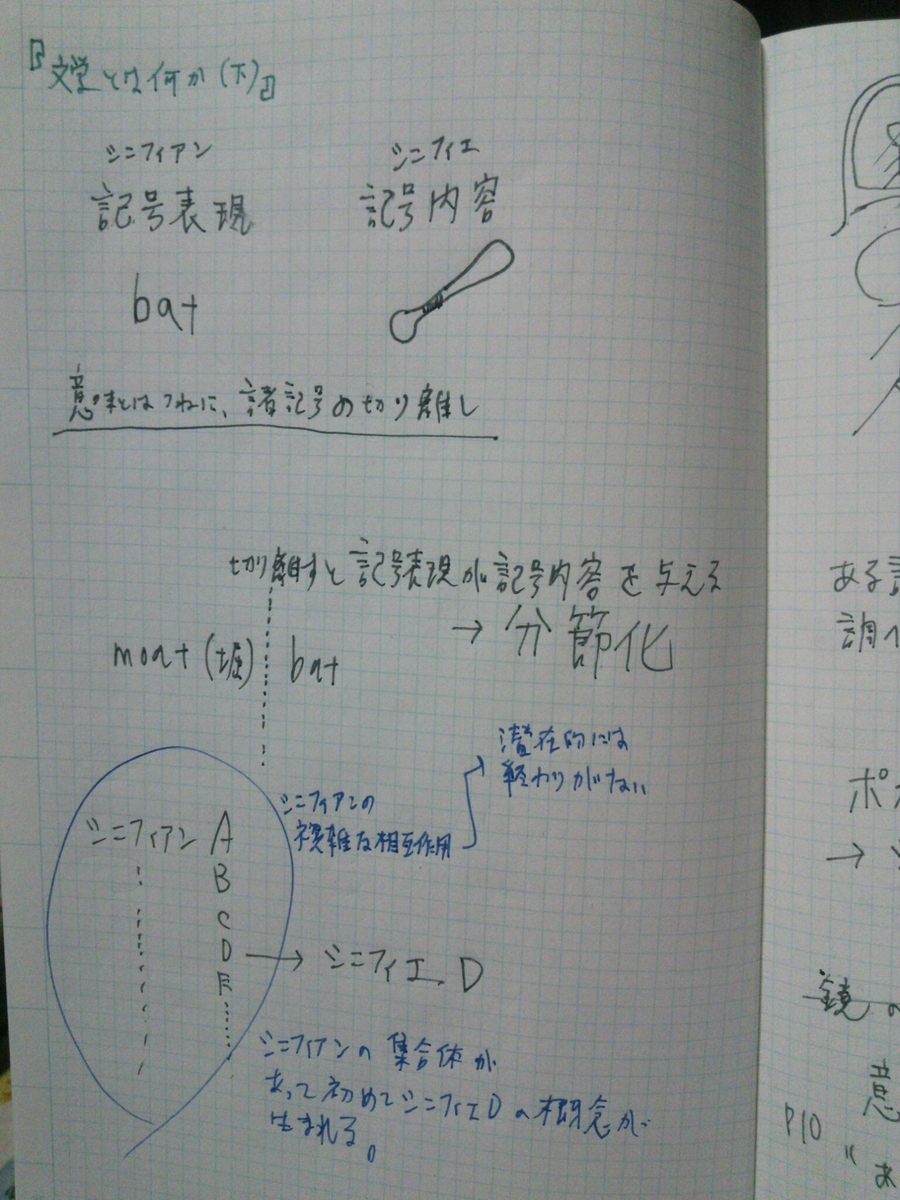 『文学とは何か(下)』
シニフィアン シニフィエ
記号表現 記号内容
bat
意味とはつねに、諸記号の切り離し
切り離すと記号表現が記号内容を与える
→ 分節化
moat(堀) bat
潜在的には
終わりがない
シニフィアンの
複雑な相互作用
シニフィアン A
B
C
D → シニフィエ D
E
シニフィアンの集合体が
あって初めてシニフィエDの概念が
生まれる。
ある
調
ポ
→
鏡の
意
P10
"あ